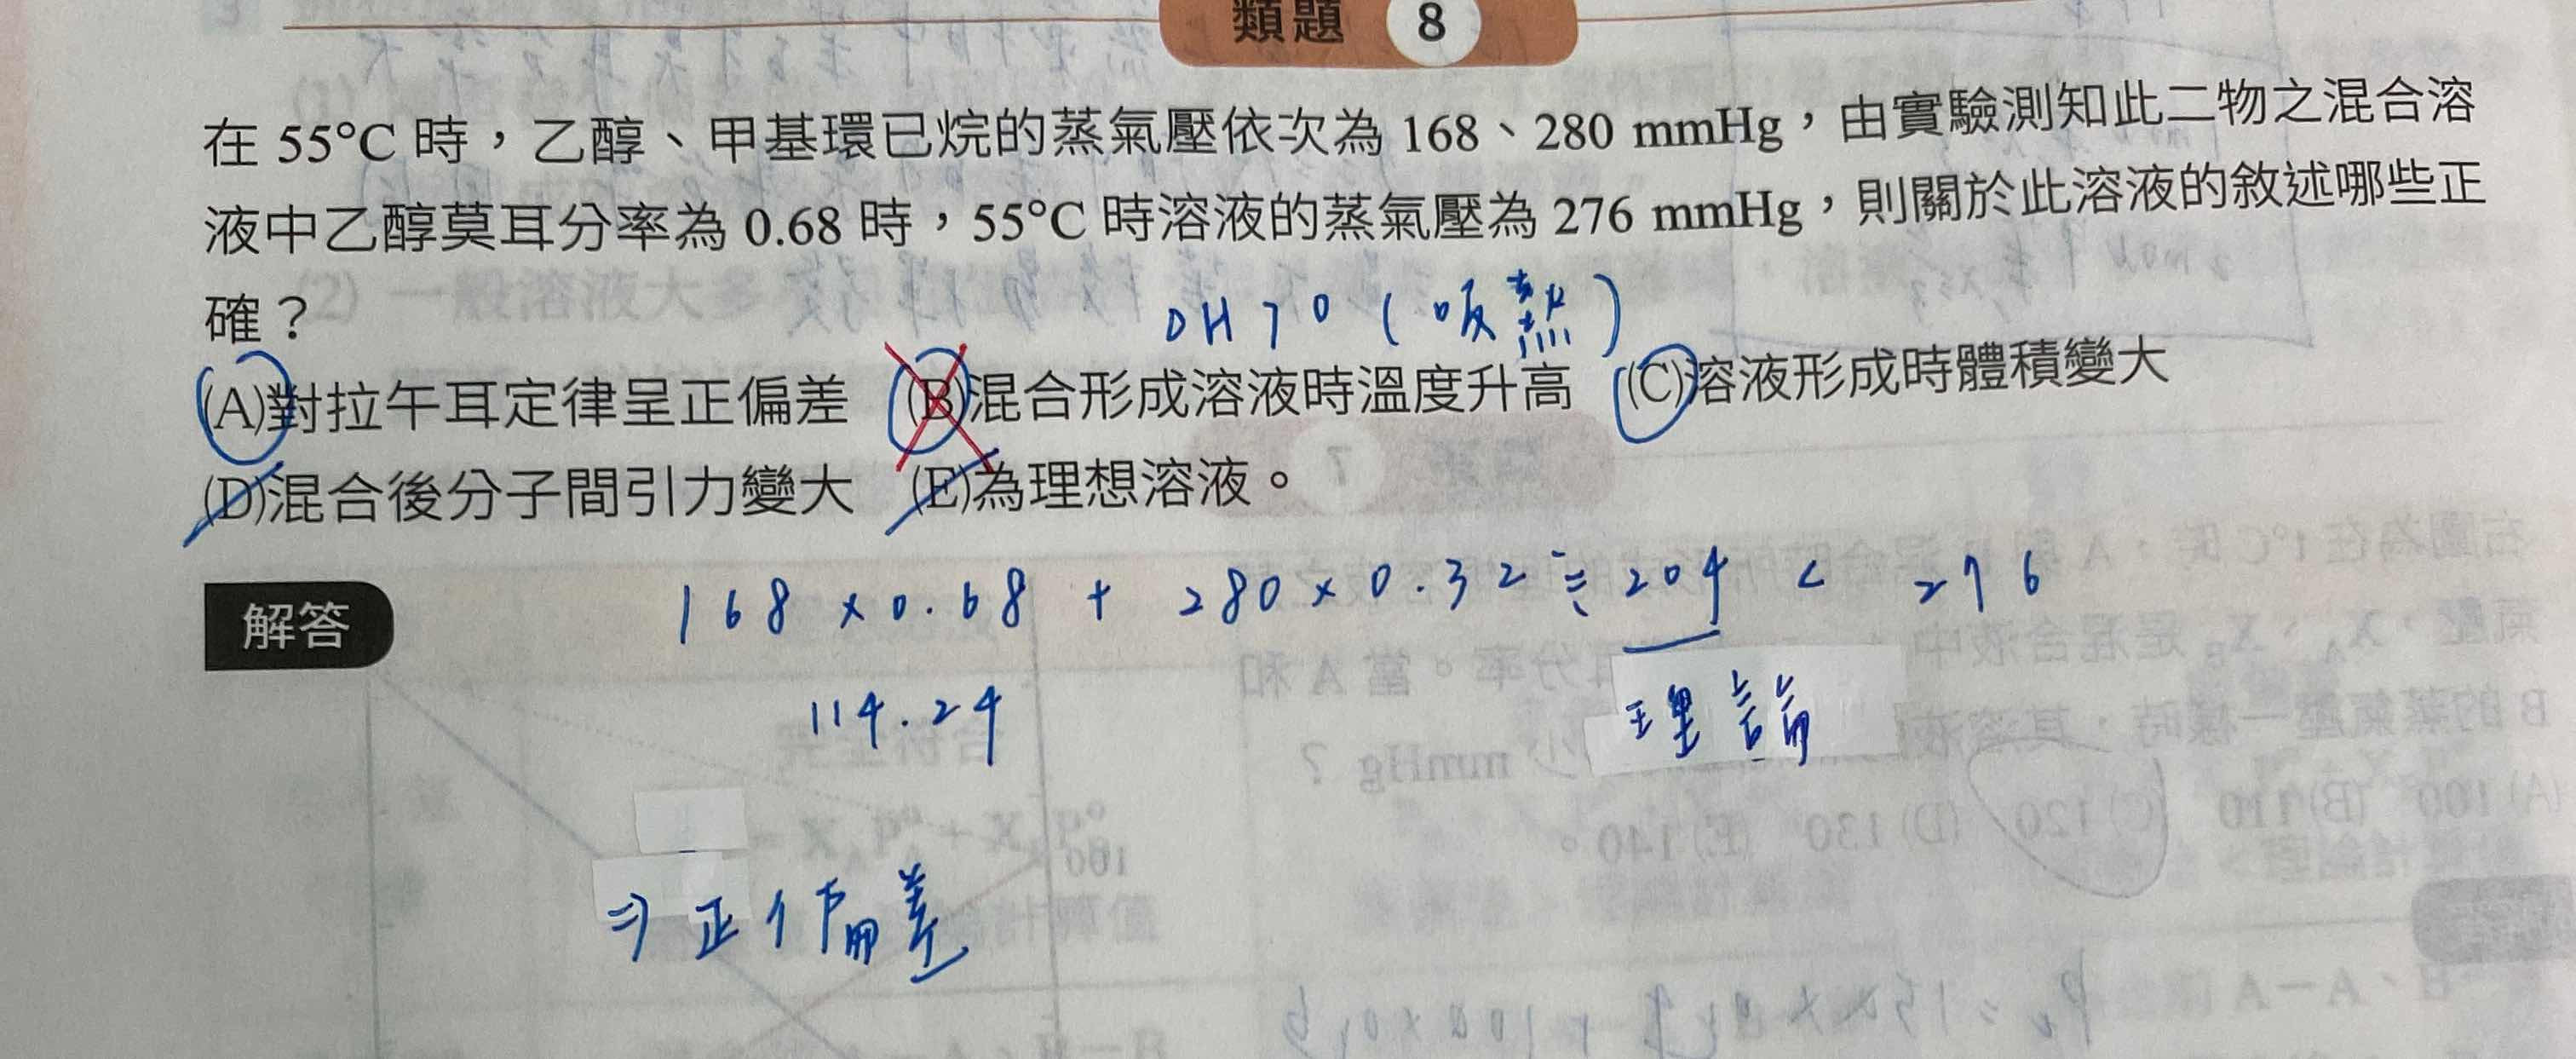 類題 8
在 55°C 時，乙醇、甲基環已烷的蒸氣壓依次為 168、280 mmHg，由實驗測知此二物之混合溶
液中乙醇莫耳分率為 0.68 時，55°C 時溶液的蒸氣壓為 276 mmHg，則關於此溶液的敘述哪些正
確？
ΔH > 0 (吸熱)
(A)對拉午耳定律呈正偏差 (B)混合形成溶液時溫度升高 (C)溶液形成時體積變大
(D)混合後分子間引力變大 (E)為理想溶液。
解答
168 × 0.68 + 280 × 0.32 ≒ 204 < 276
114.24
理論
⇒ 正偏差